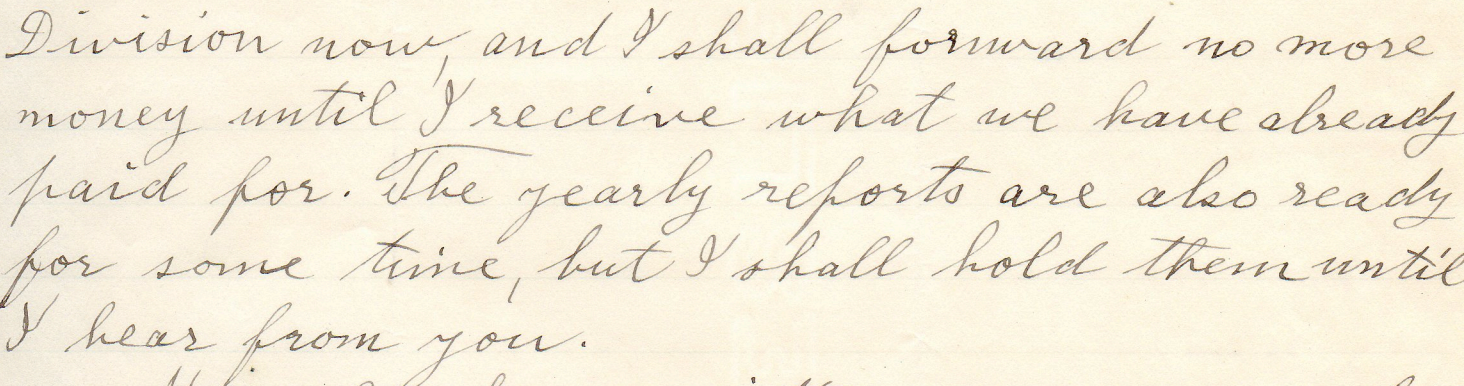 Division now, and I shall forward no more
money until I receive what we have already
paid for. The yearly reports are also ready
for some time, but I shall hold them until
I hear from you.